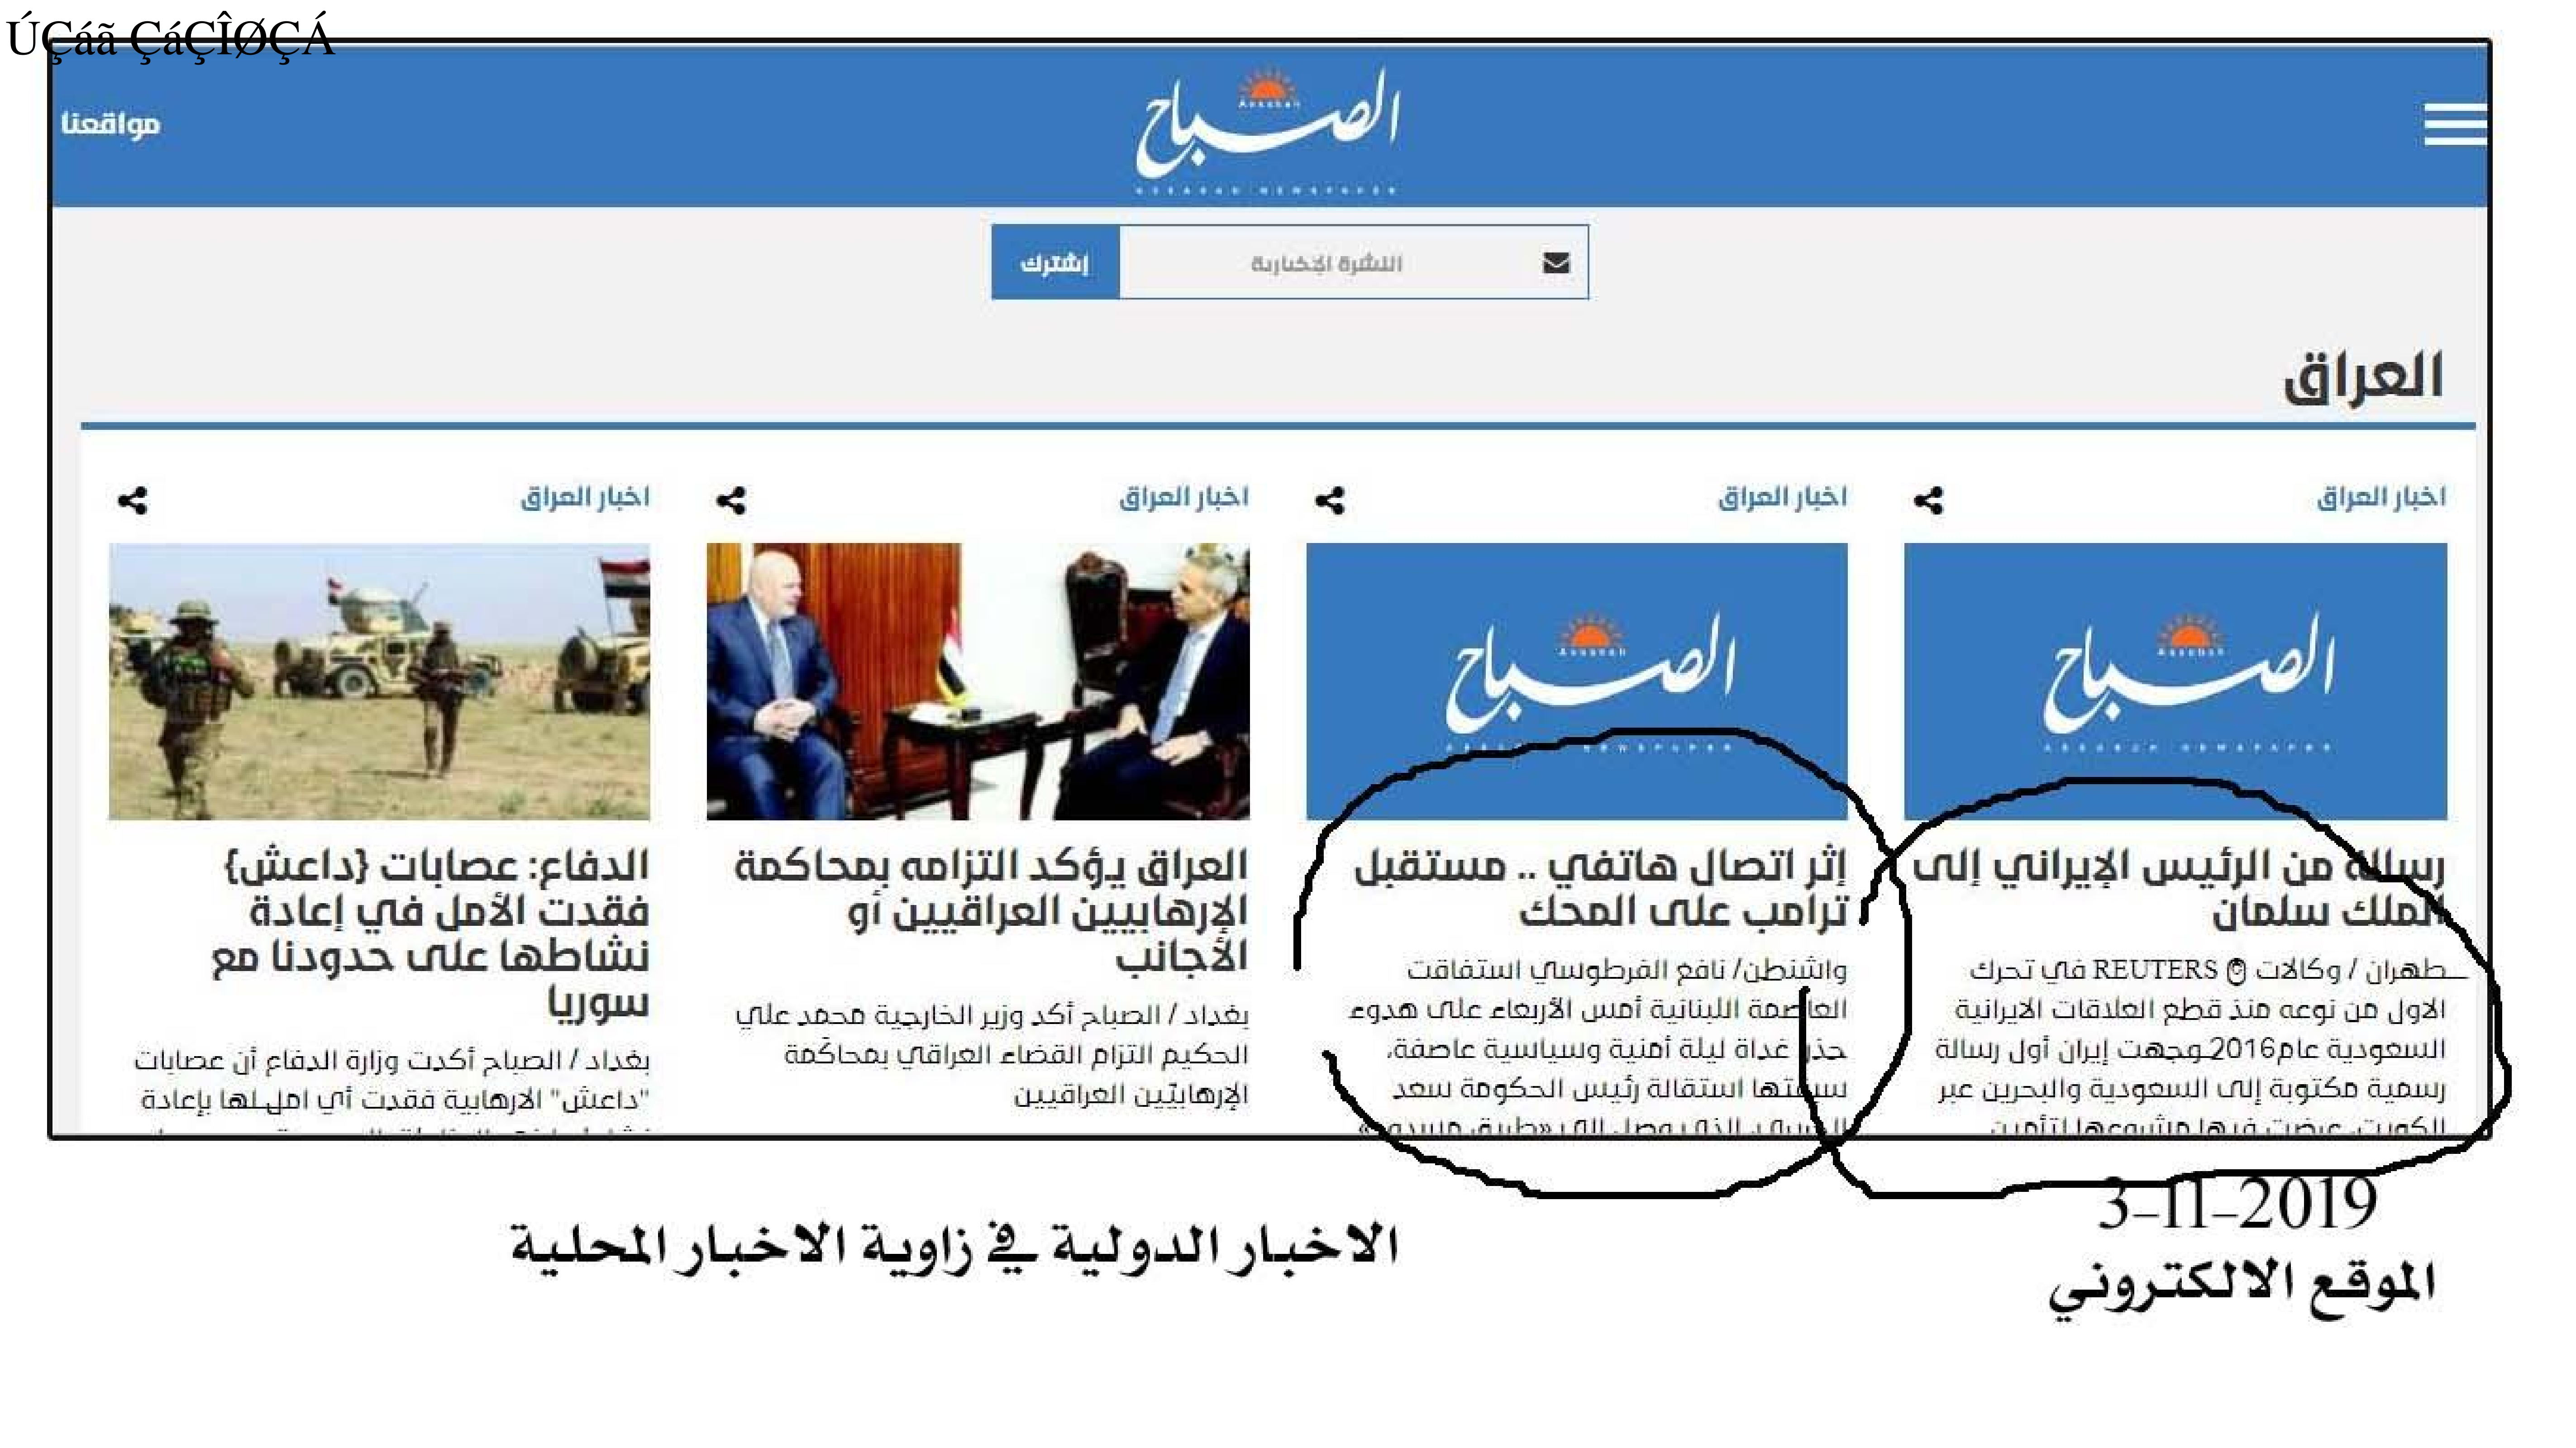 ÚÇáã ÇáÇÎØÇÁ
مواقعنا
الصباح
Assabah
ASSABAH NEWSPAPER
النشرة الإخبارية
إشترك
العراق
اخبار العراق
الصباح
رسالة من الرئيس الإيراني إلى
الملك سلمان
طهران / وكالات REUTERS © في تحرك
الاول من نوعه منذ قطع العلاقات الايرانية
السعودية عام2016وجهت إيران أول رسالة
رسمية مكتوبة إلى السعودية والبحرين عبر
الكويت، عرضت فيها مشروعها لتأمين
اخبار العراق
الصباح
إثر اتصال هاتفي .. مستقبل
ترامب على المحك
واشنطن/ نافع الفرطوسي استفاقت
العاصمة اللبنانية أمس الأربعاء على هدوء
حذر غداة ليلة أمنية وسياسية عاصفة،
سبقتها استقالة رئيس الحكومة سعد
الحريري، الذي وصل إلى «طريق مسدود»
اخبار العراق
العراق يؤكد التزامه بمحاكمة
الإرهابيين العراقيين أو
الأجانب
بغداد / الصباح أكد وزير الخارجية محمد علي
الحكيم التزام القضاء العراقي بمحاكمة
الإرهابيّين العراقيين
اخبار العراق
الدفاع: عصابات {داعش}
فقدت الأمل في إعادة
نشاطها على حدودنا مع
سوريا
بغداد / الصباح أكدت وزارة الدفاع أن عصابات
"داعش" الارهابية فقدت أي امل لها بإعادة
3-11-2019
الموقع الالكتروني
الاخبار الدولية في زاوية الاخبار المحلية